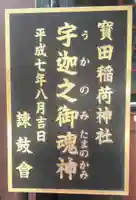 寶田稲荷神社
宇迦之御魂神
うかのみたまのかみ
平成七年八月吉日
諫鼓會